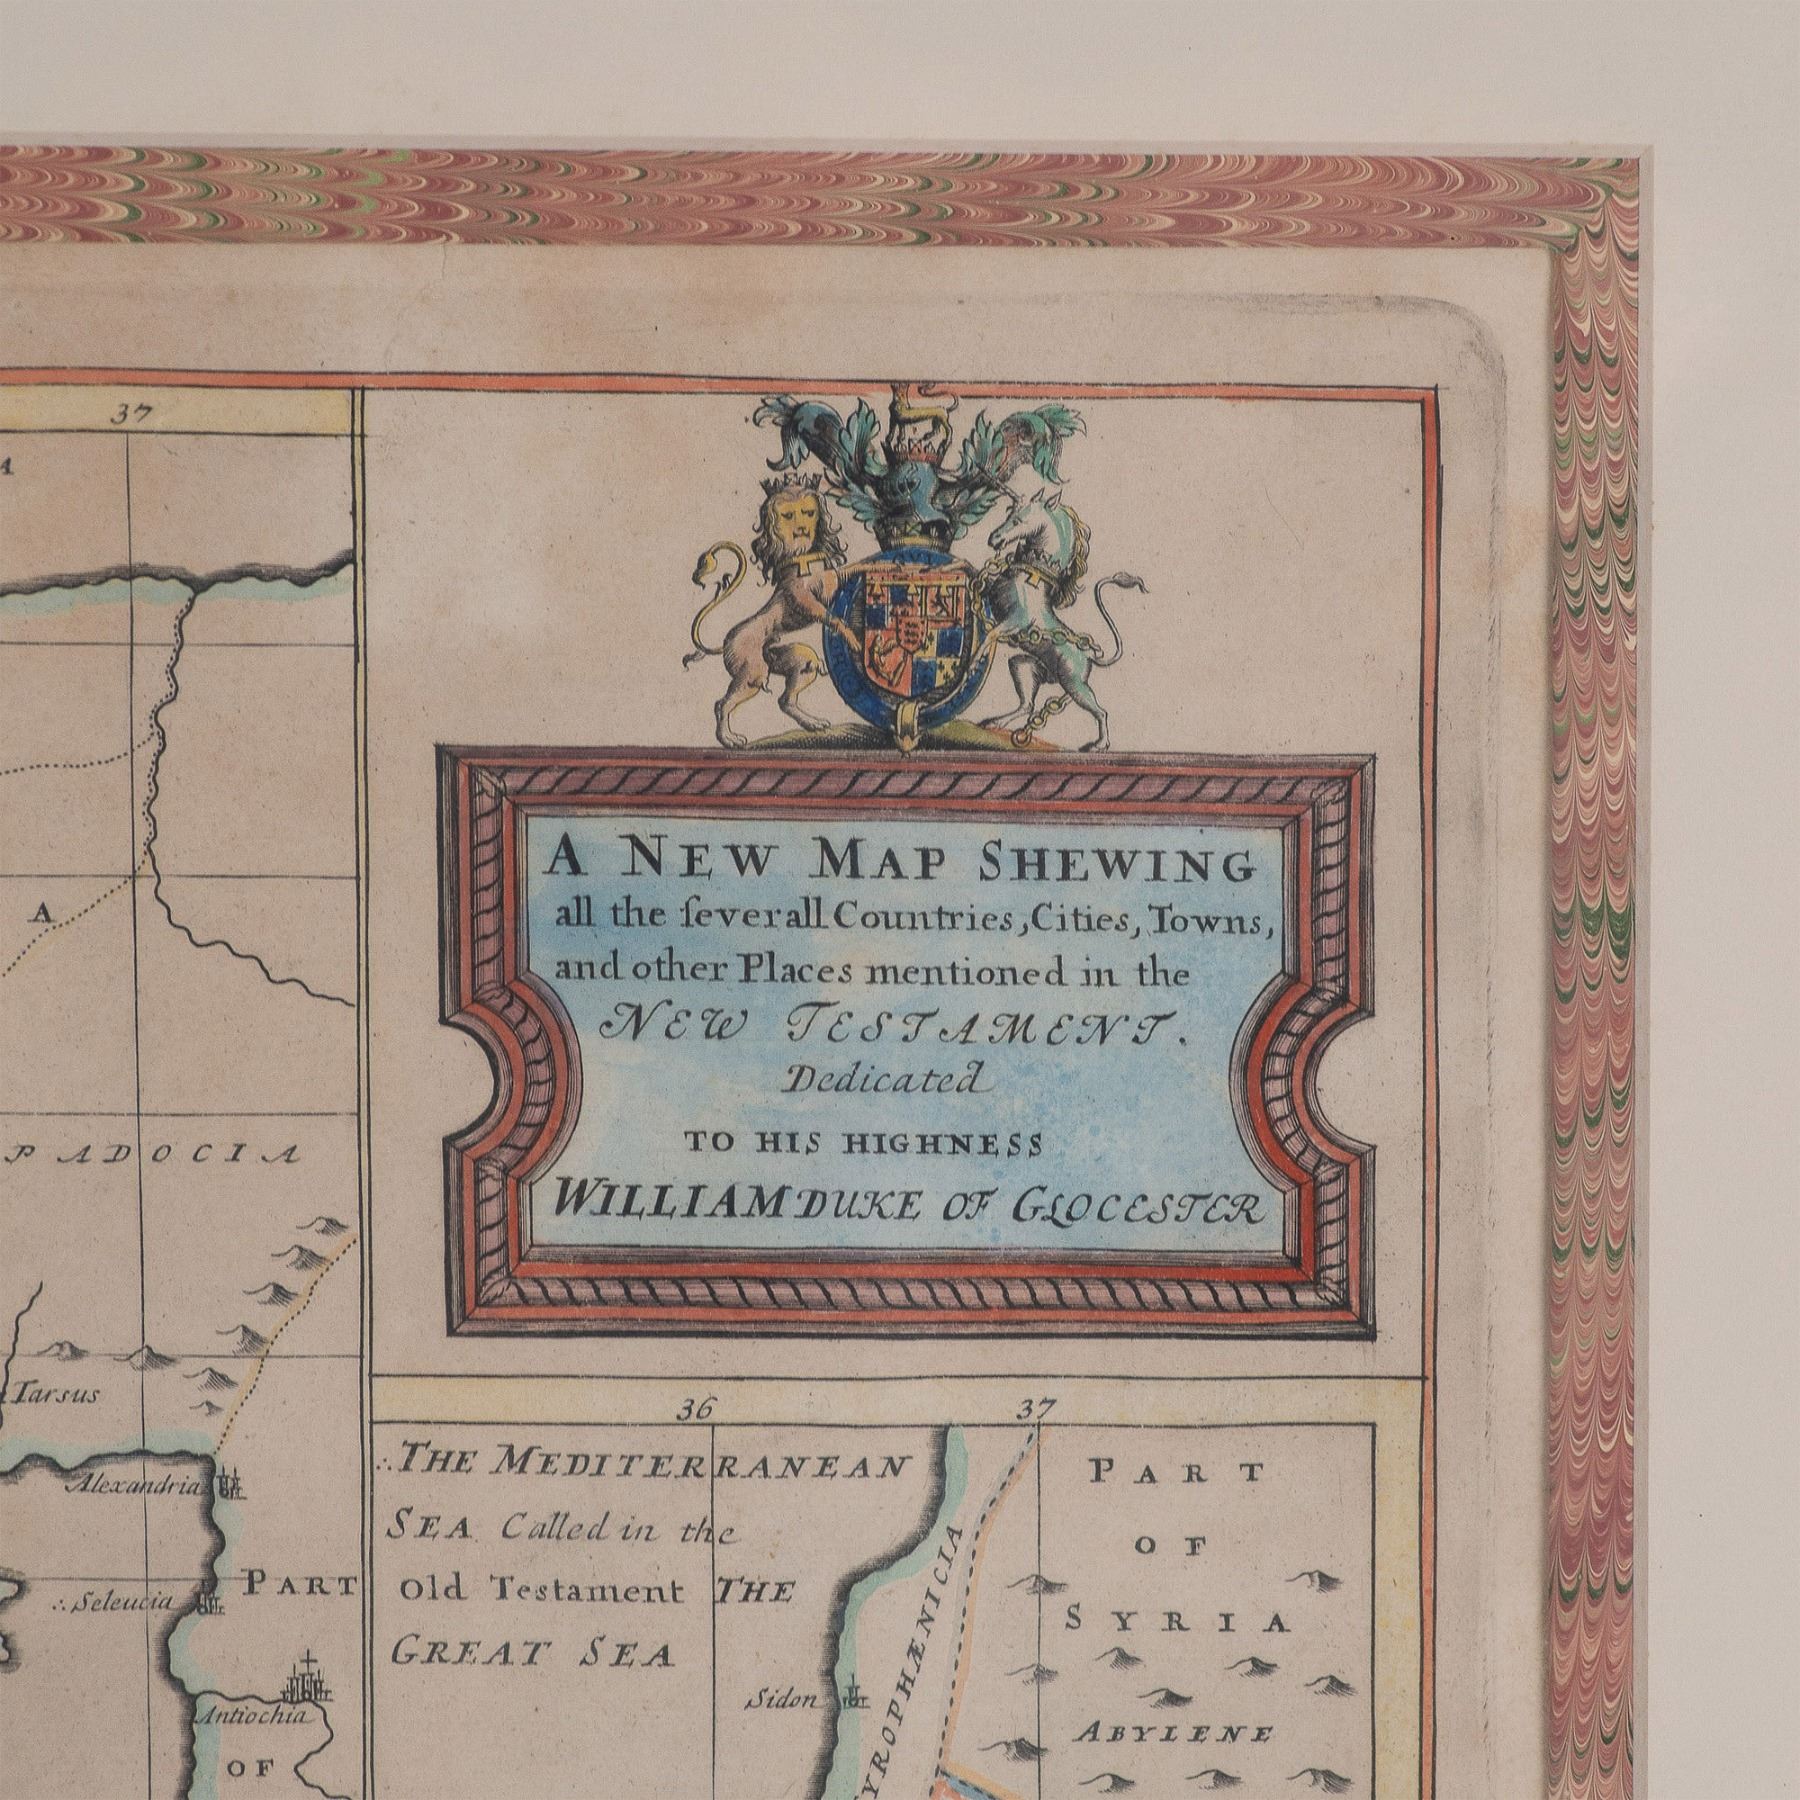 37
A NEW MAP SHEWING
all the ſeverall Countries, Cities, Towns,
and other Places mentioned in the
NEW TESTAMENT.
Dedicated
TO HIS HIGHNESS
WILLIAM DUKE OF GLOCESTER
A
PADOCIA
Tarsus
Alexandria
Seleucia
PART
Antiochia
OF
36 37
THE MEDITERRANEAN
SEA Called in the
Old Testament THE
GREAT SEA
Sidon
YROPHÆNICIA
PART
OF
SYRIA
ABYLENE